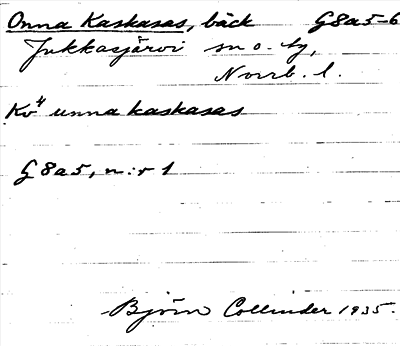 Onna Kaskasas, bäck G8a5-6
Jukkasjärvi sn o. tg,
Norrb. l.
Kv" unna kaskasas
G8a5, n:r 1
Björn Collinder 1935.